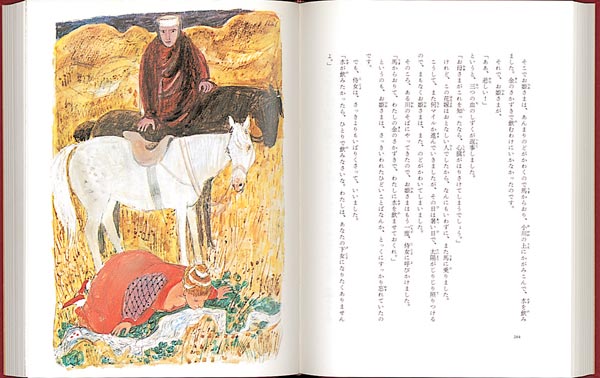 そこでお姫さまは、あんまりのどがかわくので馬からおり、小川の上にかがみこんで、水を飲み
ました。金のさかずきで飲むわけにいかなかったのです。
それで、お姫さまが、
「ああ、悲しい!」
というと、三つの血のしずくが返事しました。
「お母さまがこれを知ったなら、心臓がはりさけてしまうでしょう。」
けれど、この花嫁はおとなしい人でしたから、なんにもいわずに、また馬に乗りました。
こうして、また何マイルか進んでいきましたが、その日は暑い日で、太陽がじりじり照りつける
ので、まもなくお姫さまは、またのどがかわいてしまいました。
そのころ、ある川のそばにやってきたので、お姫さまはもう一度、侍女に呼びかけました。
「馬からおりて、わたしの金のさかずきで、わたしに水を飲ませておくれ。」
というのも、お姫さまは、さっきいわれたひどいことばなんか、とっくにすっかり忘れていたの
です。
でも、侍女は、さっきよりもいばりくさって、いいました。
「水が飲みたかったら、ひとりで飲みなさいな。わたしは、あなたの下女になりたくありません
よ。」
284